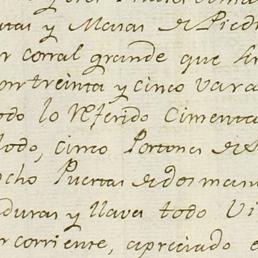 y Masas de Piedr
corral grande que
treinta y cinco vara
odo lo Referido Cimenta
lodo, cinco Portones de
ocho Puertas de dos mano
duras y llave todo
corriente, apreciado e